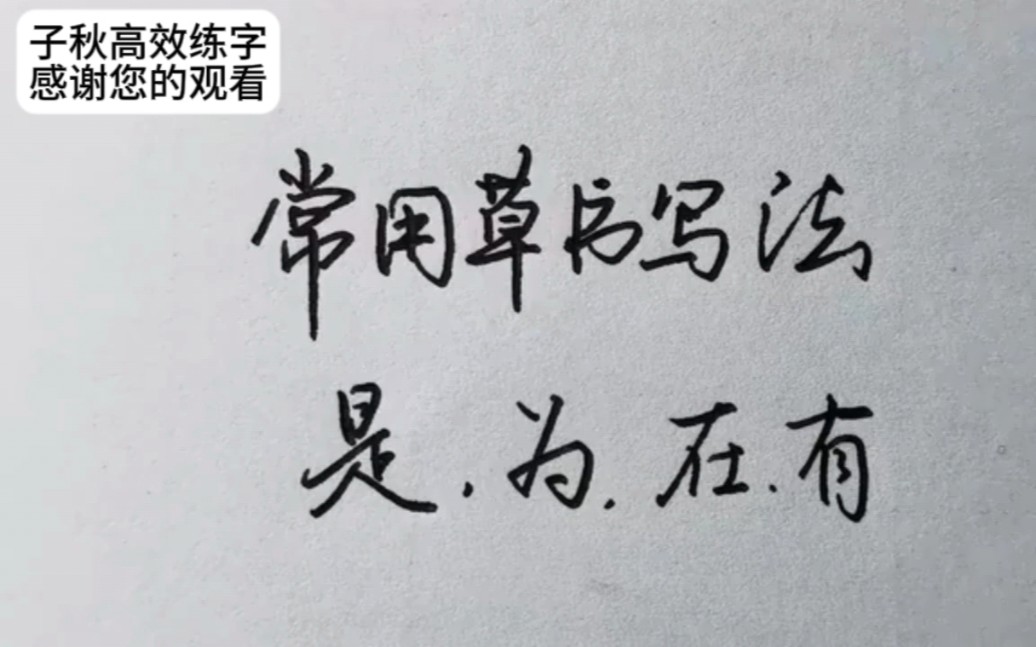 子秋高效练字
感谢您的观看
常用草书写法
是.为.在.有